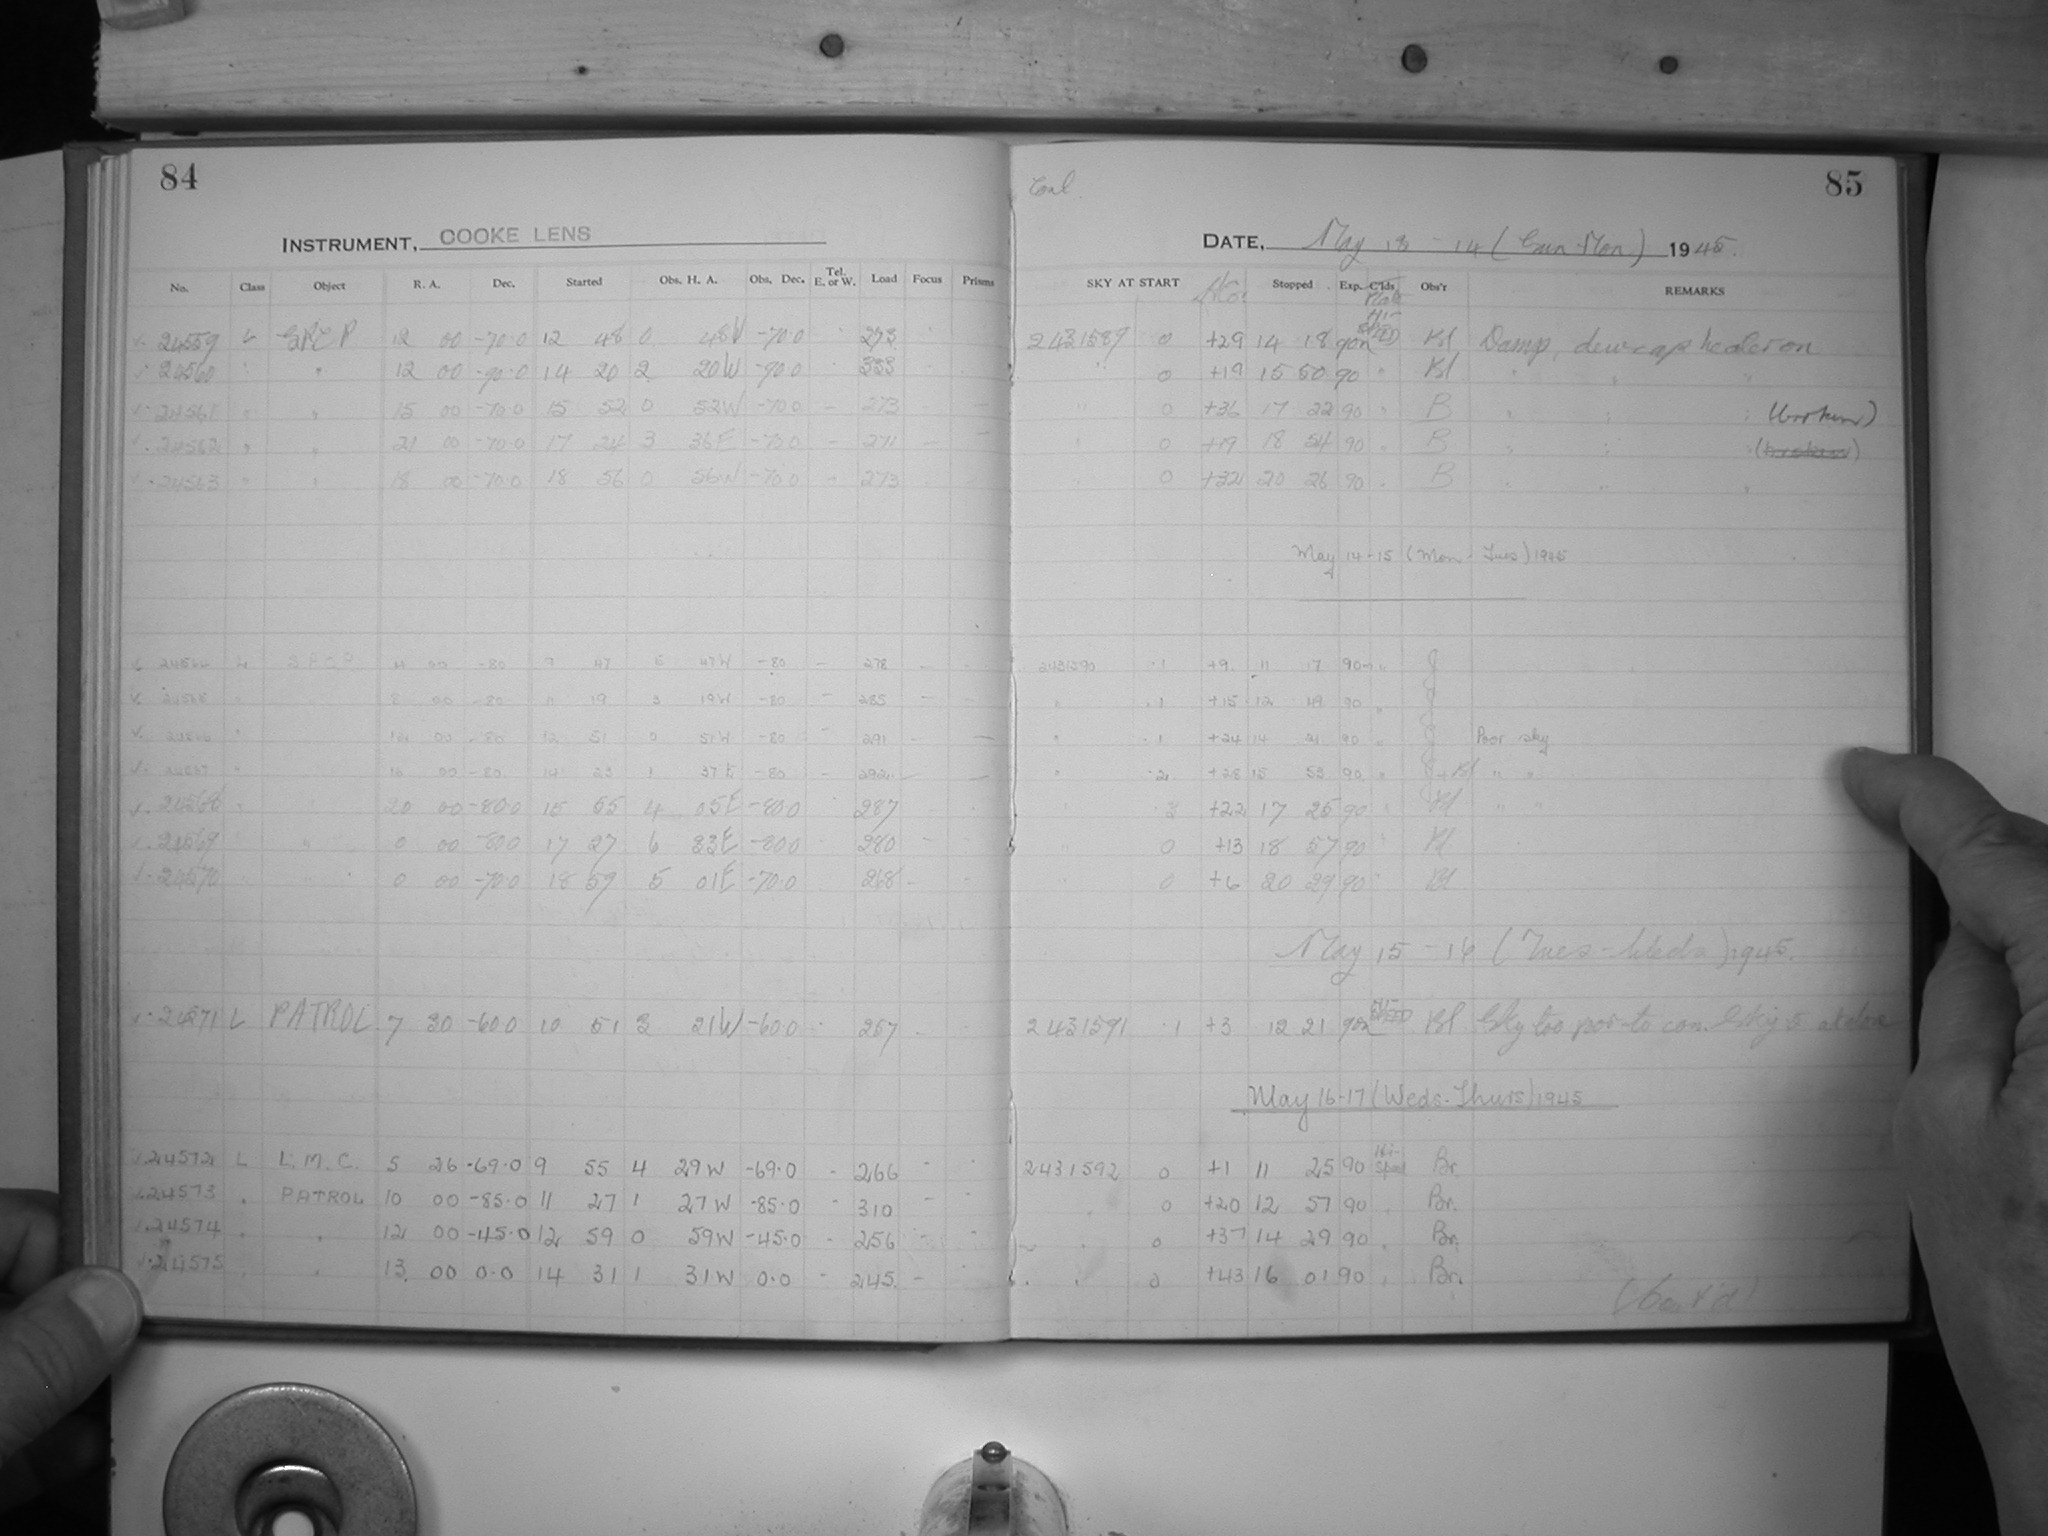 84
INSTRUMENT, COOKE LENS
No. Class Object R. A. Dec. Started Obs. H. A. Obs. Dec. Tel. E. or W. Load Focus Prisms
24559 L 12 00 -70.0 12 48 0 48W -70.0 273
24560 " " 12 00 -90.0 14 20 2 20W -90.0 333
24561 " " 15 00 -70.0 15 52 0 52W -70.0 - 273 -
24562 " " 21 00 -70.0 17 24 3 36E -70.0 - 271 - -
24563 " " 18 00 -70.0 18 56 0 56W -70.0 - 273
24564 L 4 00 -80 9 47 5 47W -80 - 278 -
24565 " 8 00 -80 11 19 3 19W -80 - 285 - -
24566 " 12 00 -80 12 51 0 51W -80 - 291 - -
24567 " 16 00 -80 14 23 1 37E -80 - 292 - -
24568 " 20 00 -80.0 15 55 4 05E -80.0 287
24569 " 0 00 -80.0 17 27 6 33E -80.0 280
24570 " 0 00 -70.0 18 59 5 01E -70.0 268
24571 L PATROL 7 30 -60.0 10 51 3 21W -60.0 257
24572 L L.M.C. 5 26 -69.0 9 55 4 29W -69.0 - 266 -
24573 " PATROL 10 00 -85.0 11 27 1 27W -85.0 - 310 -
24574 " " 12 00 -45.0 12 59 0 59W -45.0 - 256 -
24575 " " 13 00 0.0 14 31 1 31W 0.0 - 245 -
85
DATE, May 13-14 (Sun-Mon) 1945
SKY AT START Stopped Exp. C'lds Obs'r REMARKS
Plate
2431589 0 +29 14 18 90m Hi-SPEED Bl Damp, dewcap heater on
" 0 +19 15 50 90 " Bl " " "
" 0 +36 17 22 90 " B " " " (broken)
" 0 +19 18 54 90 " B " " " (broken)
" 0 +32 20 26 90 " B " " "
May 14-15 (Mon-Tues) 1945
2431590 .1 +9 11 17 90m " J
" .1 +15 12 49 90 " J
" .1 +24 14 21 90 " J Poor sky
" .2 +28 15 53 90 " J+Bl " "
" .3 +22 17 25 90 " Bl " "
" 0 +13 18 57 90 " Bl
" 0 +6 20 29 90 " Bl
May 15-16 (Tues-Weds) 1945.
2431591 .1 +3 12 21 90m Hi-SPEED Bl Sky too poor to con. Sky 5 at above
May 16-17 (Weds-Thurs) 1945
2431592 0 +1 11 25 90 Hi-Speed Br.
" 0 +20 12 57 90 " Br.
" 0 +37 14 29 90 " Br.
" 0 +43 16 01 90 " Br.
(Cont'd)